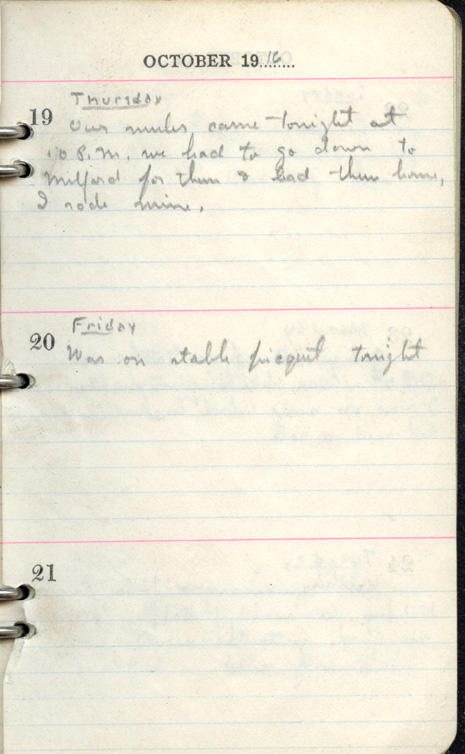 OCTOBER 1916
19
Thursday
Our mules came tonight at
10 P.M. we had to go down to
Milford for them & lead them home,
I rode mine.
20
Friday
Was on stable picquit tonight
21